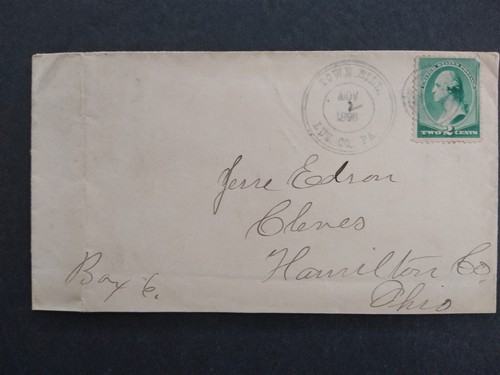 TOWN HILL,
NOV
2
LUZ. CO. PA.
UNITED STATES POSTAGE
TWO 2 CENTS
Jerre Edron
Cleves
Hamilton Co.
Ohio
Box 6.